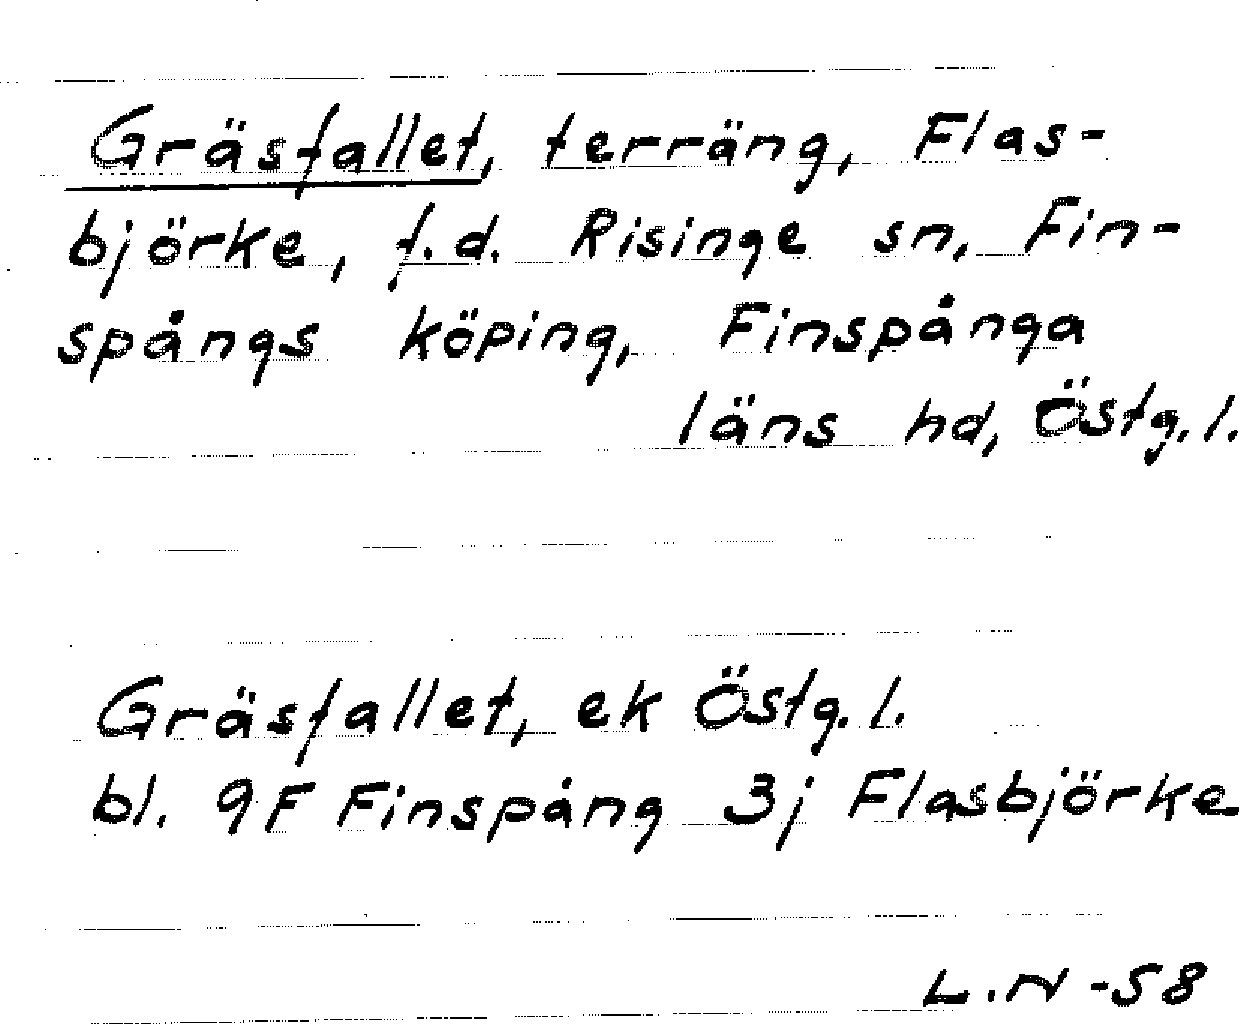 Gräsfallet, terräng, Flas-
björke, f.d. Risinge sn, Fin-
spångs köping, Finspånga
läns hd, Östg.l.
Gräsfallet, ek Östg.l.
bl. 9F Finspång 3j Flasbjörke
L.N -58